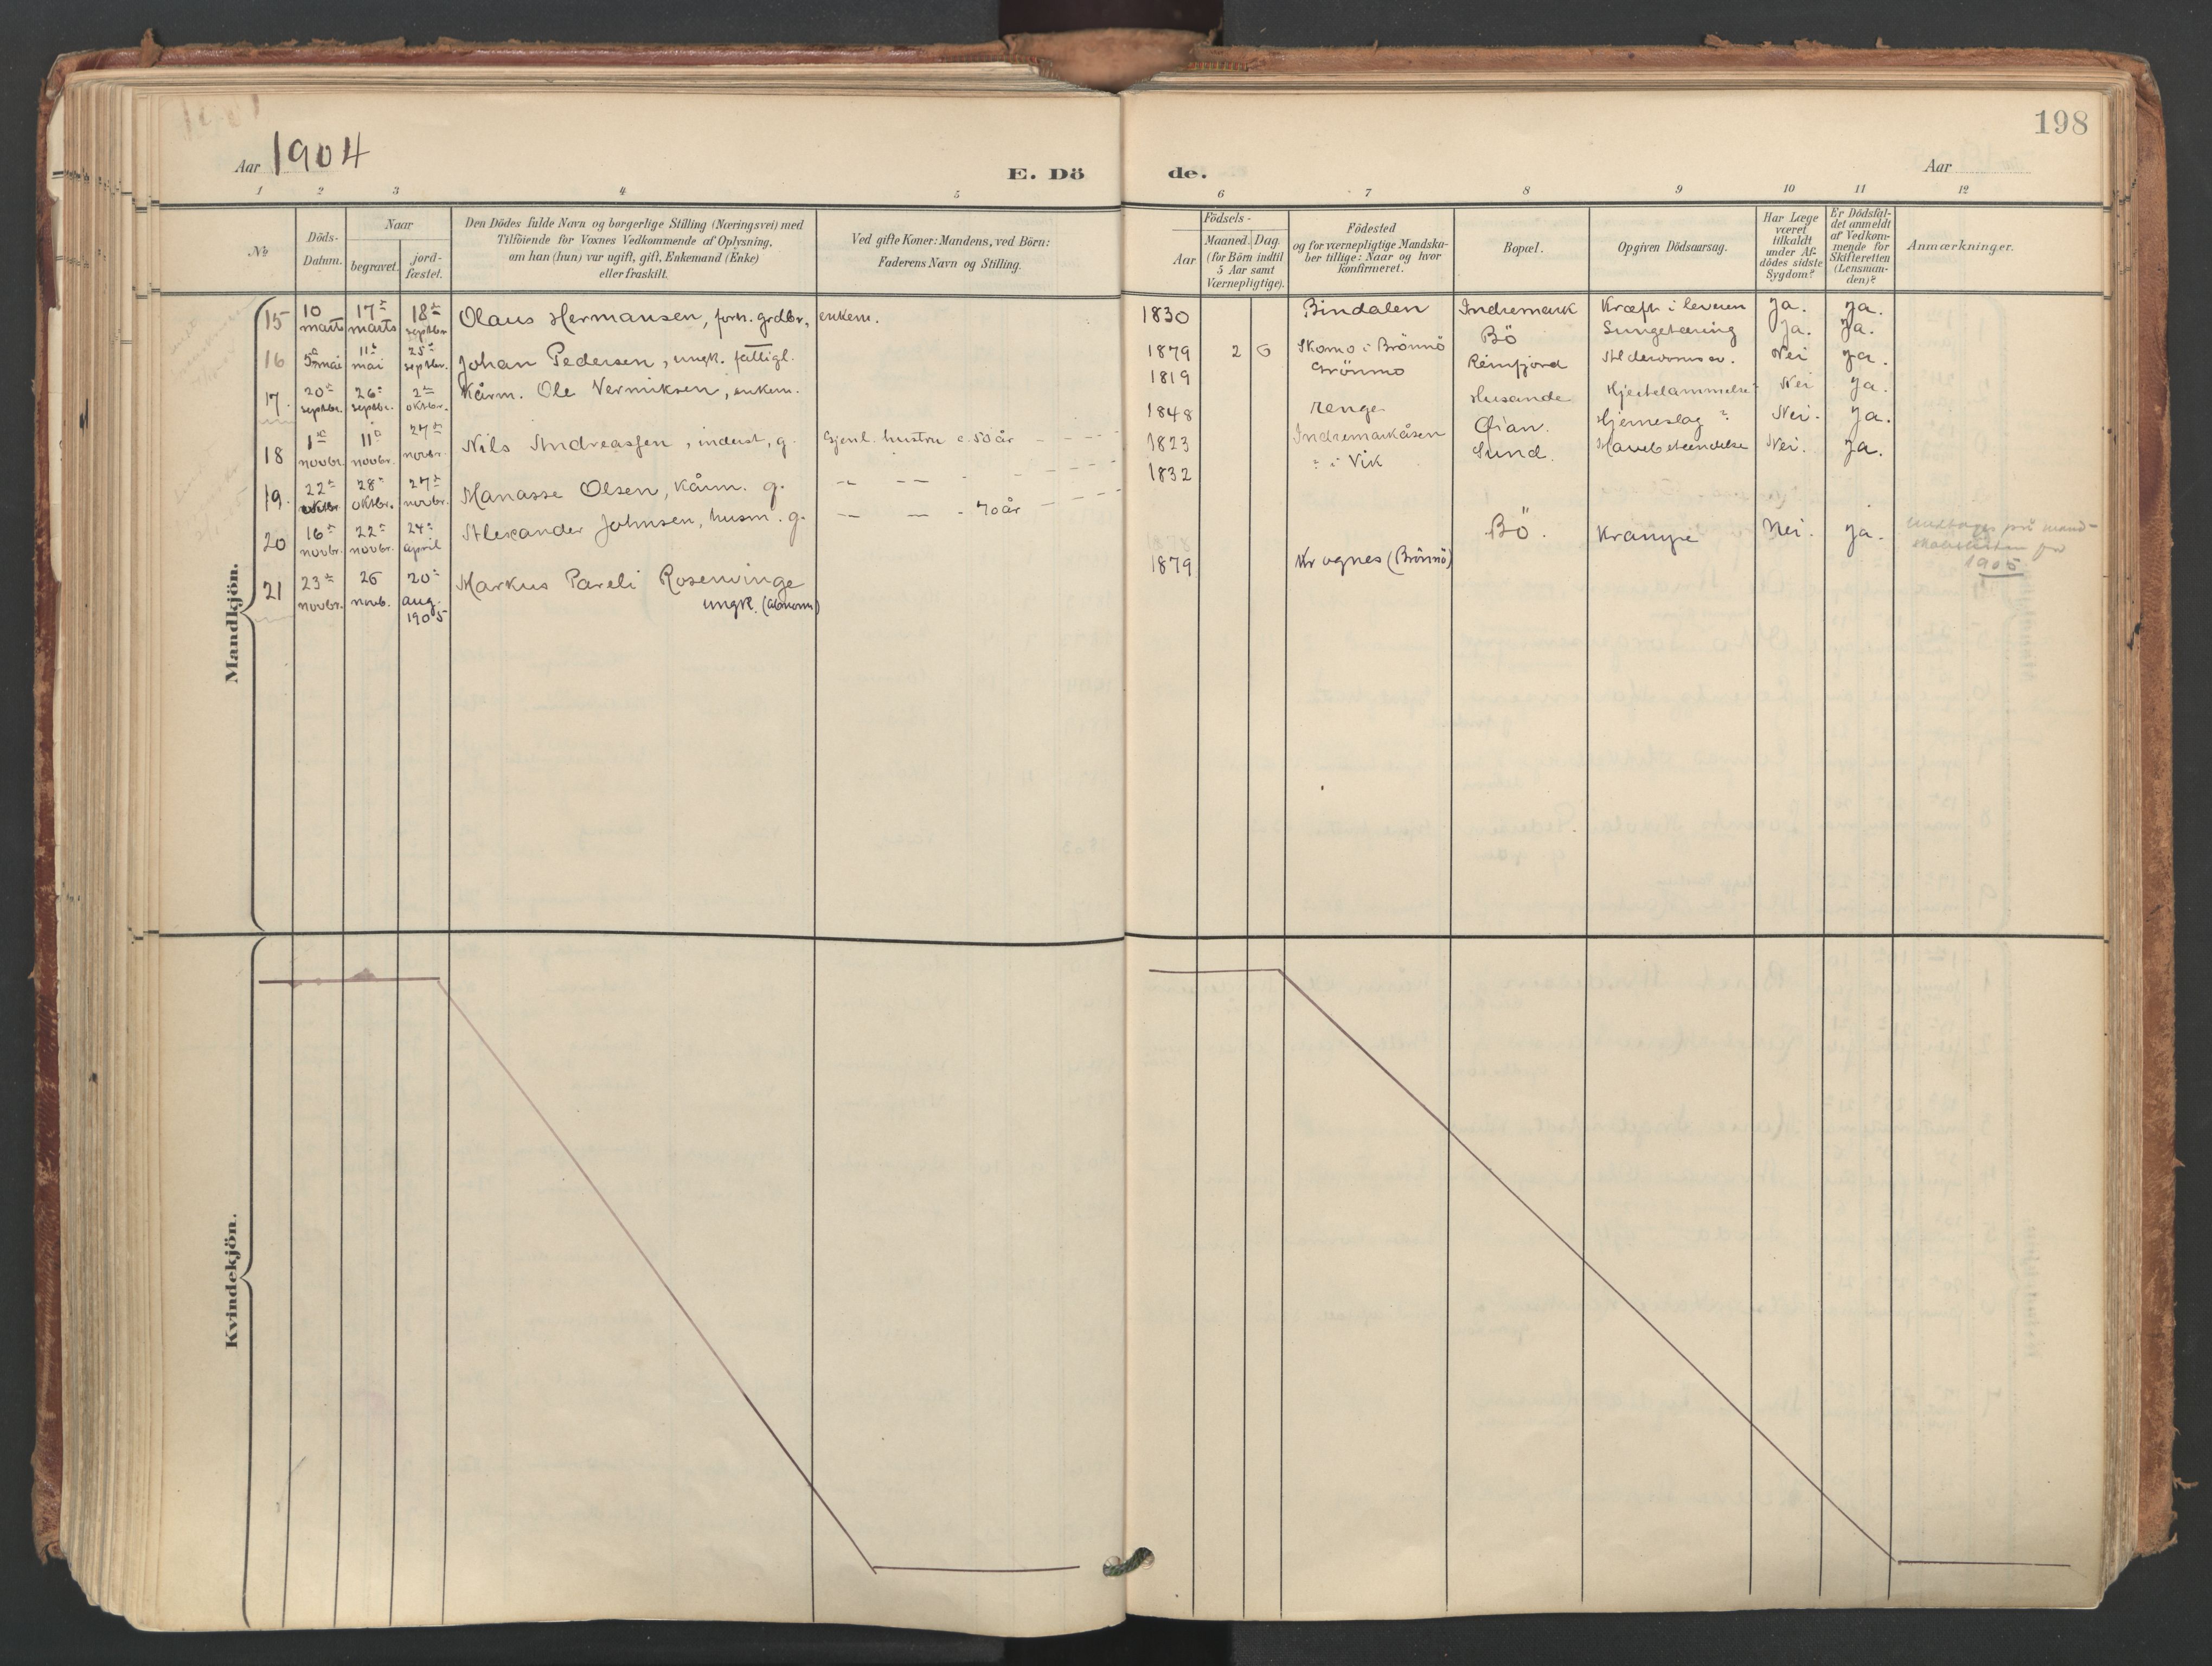 198
Aar 1904
E. Dö de.
Aar
1 2 3 4 5 6 7 8 9 10 11 12
No
Döds-Datum.
Naar
begravet.
jord-fæstet.
Den Dödes fulde Navn og borgerlige Stilling (Næringsvei) med
Tilföiende for Voxnes Vedkommende af Oplysning,
om han (hun) var ugift, gift, Enkemand (Enke)
eller fraskilt.
Ved gifte Koner: Mandens, ved Börn:
Faderens Navn og Stilling.
Födsels-
Aar
Maaned. Dag.
(for Börn indtil
5 Aar samt
Værnepligtige).
Födested
og for værnepligtige Mandska-
ber tillige: Naar og hvor
konfirmeret.
Bopæl.
Opgiven Dödsaarsag.
Har Læge
været
tilkaldt
under Af-
dödes sidste
Sygdom?
Er Dödsfal-
det anmeldt
af Vedkom-
mende for
Skifteretten
(Lensman-
den)?
Anmærkninger.
Mandkjön.
15 10 marts 17 marts 18 septbr Olaus Hermansen, forh. grdbr, enkem. 1830 Bindalen Indremark Kræft i leveren Ja. Ja.
16 5 mai 11 mai 25 septbr. Johan Pedersen, ungk. fattigl. 1879 2 6 Skomo i Brönnö Bö Ja. Ja.
17. 20 septbr. 26 septbr. 2 oktbr. Kårm. Ole Vermiksen, enkem. 1819 Grönmo Reinfjord Nei Ja.
18 1 novbr. 11 novbr. 27 novbr. Nils Andreassen, inderst, g. Gjenl. hustru c. 50 år 1848 Husande Hjertelammelse Nei Ja.
19. 22 oktbr 28 oktbr. 27 novbr. Manasse Olsen, kårm. g. 1823 Indremarkåsen Hjerneslag ? Nei. Ja.
20 16 novbr. 22 novbr. 24 april Alexander Johnsen, husm. g. 70 år 1832 " i Vik Sund. Nei. Ja.
21 23 novbr. 26 novb. 20 aug. 1905 Markus Pareli Rosenvinge
ungk. (abnorm) 1879 Krognes (Brönnö) Bö. Krampe Nei. Ja.
1905
Kvindekjön.